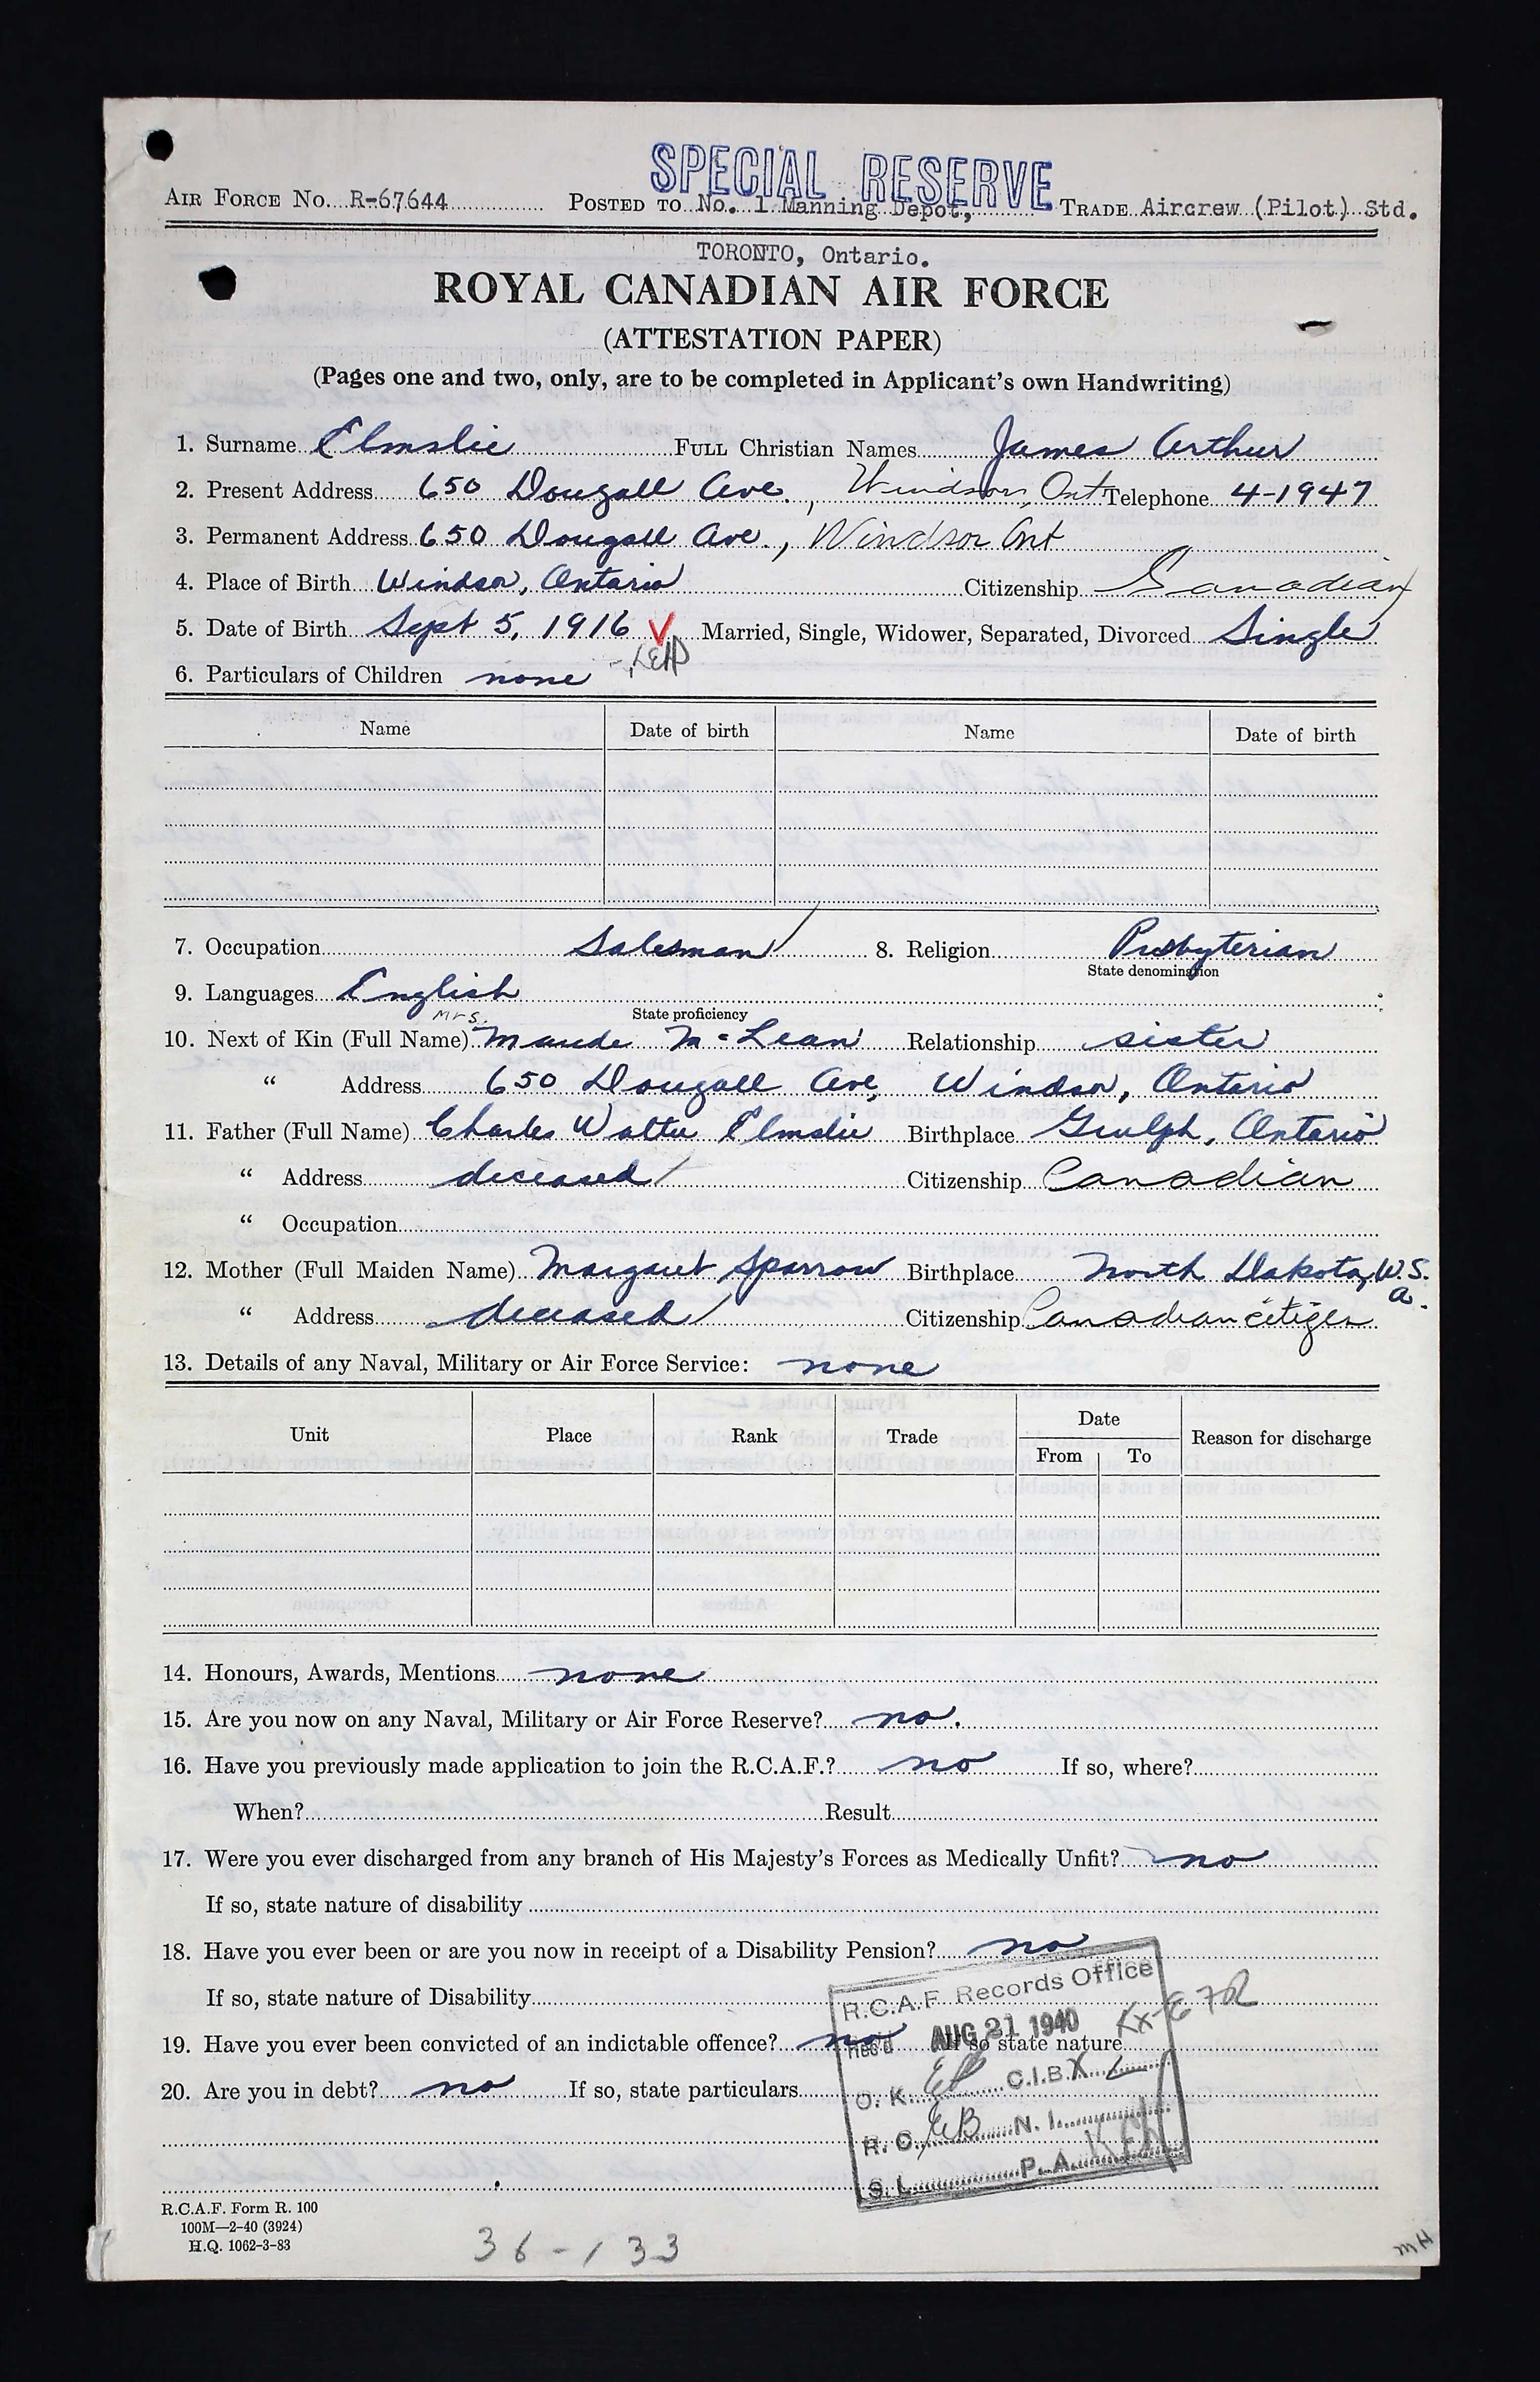 SPECIAL RESERVE
AIR FORCE NO. R-67644 POSTED TO No. 1 Manning Depot, TRADE Aircrew (Pilot) Std.
TORONTO, Ontario.
ROYAL CANADIAN AIR FORCE
(ATTESTATION PAPER)
(Pages one and two, only, are to be completed in Applicant's own Handwriting)
1. Surname Elmslie FULL Christian Names James Arthur
2. Present Address 650 Dougall Ave., Windsor, Ont Telephone 4-1947
3. Permanent Address 650 Dougall Ave., Windsor Ont
4. Place of Birth Windsor, Ontario Citizenship Canadian
5. Date of Birth Sept 5, 1916 Married, Single, Widower, Separated, Divorced Single
6. Particulars of Children none
Name Date of birth Name Date of birth
7. Occupation Salesman 8. Religion Presbyterian
State denomination
9. Languages English
Mrs. State proficiency
10. Next of Kin (Full Name) Maude McLean Relationship sister
" Address 650 Dougall Ave, Windsor, Ontario
11. Father (Full Name) Charles Walter Elmslie Birthplace Guelph, Ontario
" Address deceased Citizenship Canadian
" Occupation
12. Mother (Full Maiden Name) Margaret Sparrow Birthplace North Dakota, U.S.
a.
" Address deceased Citizenship Canadian citizen
13. Details of any Naval, Military or Air Force Service: none
Unit Place Rank Trade Date Reason for discharge
From To
14. Honours, Awards, Mentions none
15. Are you now on any Naval, Military or Air Force Reserve? no.
16. Have you previously made application to join the R.C.A.F.? no If so, where?
When? Result
17. Were you ever discharged from any branch of His Majesty's Forces as Medically Unfit? no
If so, state nature of disability
18. Have you ever been or are you now in receipt of a Disability Pension? no
If so, state nature of Disability
R.C.A.F. Records Office
19. Have you ever been convicted of an indictable offence? no If so state nature
Rec'd AUG 21 1940
20. Are you in debt? no If so, state particulars
O. K. C.I.B.X
R. O. EB N. I.
S. L. P. A.
R.C.A.F. Form R. 100
100M—2-40 (3924)
H.Q. 1062-3-83
36-133
MH